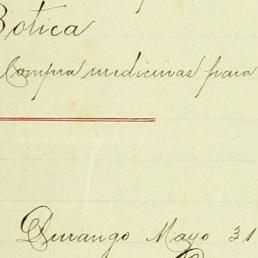 Botica
Compra medicinas para
Durango Mayo 31